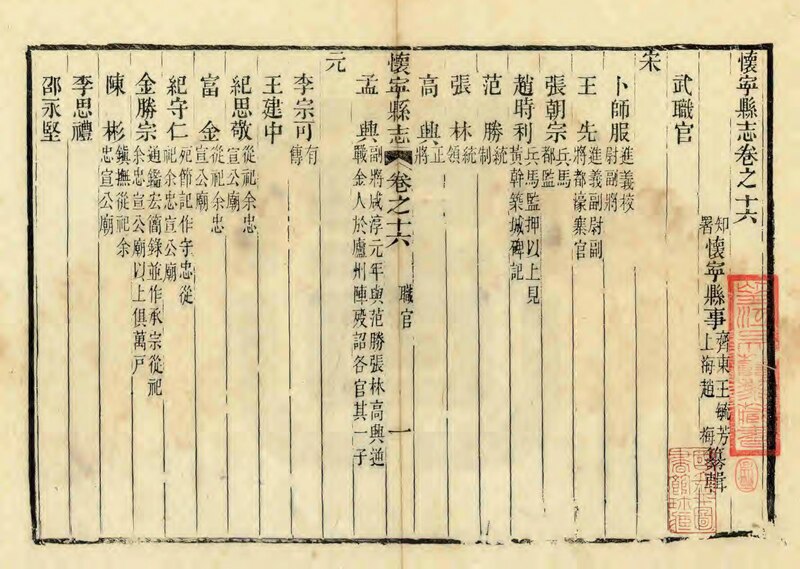 懷寧縣志卷之十六
知署懷寧縣事齊東王毓芳上海趙梅纂輯
武職官
宋
卜師服進義校尉副將
王先進義副尉副將都濠寨官
張朝宗兵馬都監
趙時利兵馬監押以上見黃幹築城碑記
范勝統制
張林統領
高興正將
懷寧縣志 卷之十六 職官 一
孟興副將咸淳元年與范勝張林高興通戰金人於廬州陣歿詔各官其一子
元
李宗可有傳
王建中
紀思敬從祀余忠宣公廟
富金從祀余忠宣公廟
紀守仁死節記作宇忠從祀余忠宣公廟
金勝宗通鑑宏簡錄並作承宗從祀余忠宣公廟以上俱萬戶
陳彬鎭撫從祀余忠宣公廟
李思禮
邵永堅